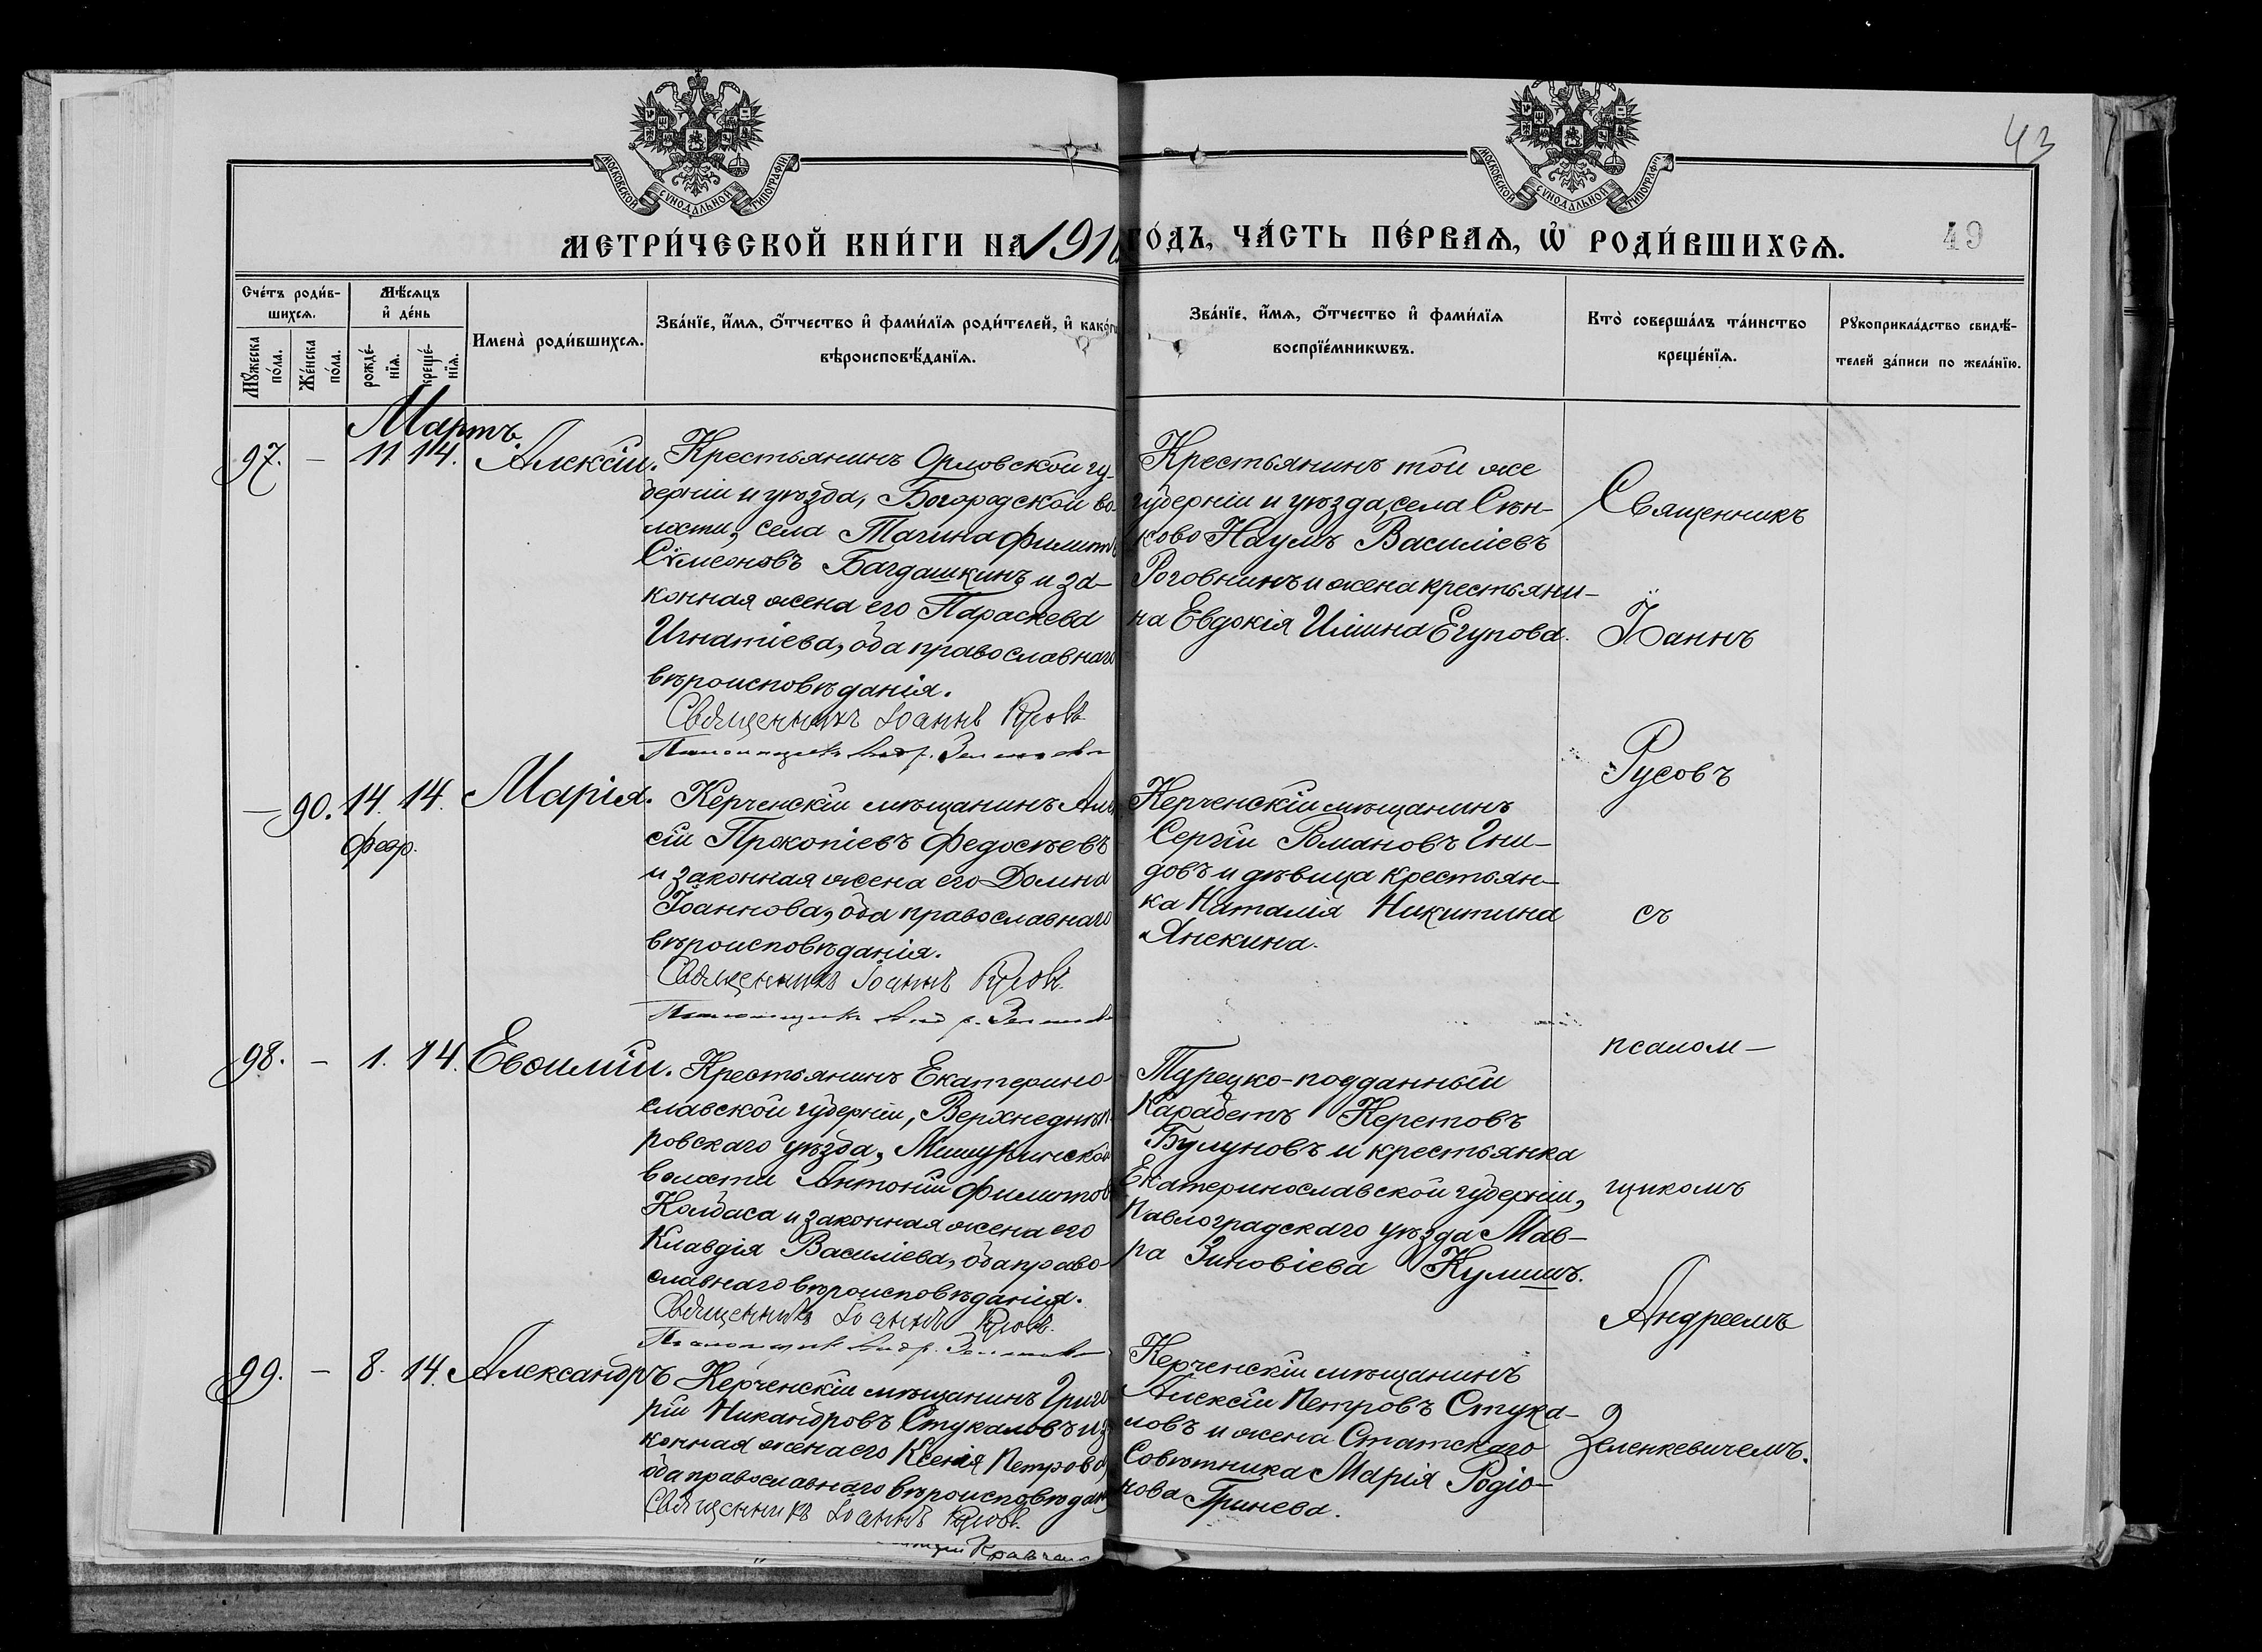 МОСКОВСКОЙ СѴНОДАЛЬНОЙ ТИПОГРАФІИ
МОСКОВСКОЙ СѴНОДАЛЬНОЙ ТИПОГРАФІИ
43
МЕТРИ́ЧЕСКОЙ КНИ́ГИ НА 191
ГО́ДЪ, ЧА́СТЬ ПЕ́РВАѦ, Ѡ҆ РОДИ́ВШИХСѦ.
49
Сче́тъ роди́в-
шихсѧ.
Мѣ́сѧцъ
и҆ де́нь
Мꙋ́жеска по́ла.
Же́нска по́ла.
рожде́-
нїѧ.
креще́-
нїѧ.
Имена̀ роди́вшихсѧ.
Зва́нїе, и҆́мѧ, ѻ҆́тчество и҆ фами́лїѧ роди́телей, и҆ како́гѡ
вѣроисповѣ́данїѧ.
Зва́нїе, и҆́мѧ, ѻ҆́тчество и҆ фами́лїѧ
воспрїе́мникѡвъ.
Кто̀ соверша́лъ та́инство
креще́нїѧ.
Рꙋкоприкла́дство свидѣ́-
телей за́писи по жела́нїю.
Мартъ.
97. — 11. 14. Алексій.
Крестьянинъ Орловской гу-
берніи и уѣзда, Богородской во-
лости, села Тагина Филиппъ
Сѵмеоновъ Багдашкинъ и за-
конная жена его Параскева
Игнатіева, оба православнаго
вѣроисповѣданія.
Священникъ Іоаннъ Русовъ
Псаломщикъ Андр. Зеленкевичъ
Крестьянинъ той же
губерніи и уѣзда, села Сѣн-
ково Наумъ Василіевъ
Роговнинъ и жена крестьяни-
на Евдокія Иліина Егупова.
— 90. 14. 14. Марія.
февр.
Керченскій мѣщанинъ Але
сій Прокопіевъ Федосѣевъ
и законная жена его Домна
Іоаннова, оба православнаго
вѣроисповѣданія.
Священникъ Іоаннъ Русовъ
Псаломщикъ Андр. Зеленкевичъ
Керченскій мѣщанинъ
Сергій Романовъ Гни-
довъ и дѣвица крестьян-
ка Наталія Никитина
Янекина.
98. — 1. 14. Евѳимій.
Крестьянинъ Екатерино-
славской губерніи, Верхнеднѣп-
ровскаго уѣзда, Мишуринской
волости Антоній Филиппов
Колбаса и законная жена его
Клавдія Василіева, оба право-
славнаго вѣроисповѣданія.
Священникъ Іоаннъ Русовъ
Псаломщикъ Андр. Зеленкевичъ
Турецко-подданный
Карабетъ Керетовъ
Булуновъ и крестьянка
Екатеринославской губерніи,
Павлоградскаго уѣзда Мав-
ра Зиновіева Кулишъ.
99. — 8. 14. Александръ
Керченскій мѣщанинъ Григо
рій Никандровъ Стукаловъ и за
конная жена его Ксенія Петрова,
оба православнаго вѣроисповѣдан
Священникъ Іоаннъ Русовъ
Кравчен
Керченскій мѣщанинъ
Алексій Петровъ Стука-
ловъ и жена Статскаго
Совѣтника Марія Родіо-
нова Гринева.
Священникъ
Іоаннъ
Русовъ
съ
псалом-
щикомъ
Андреемъ
Зеленкевичемъ.